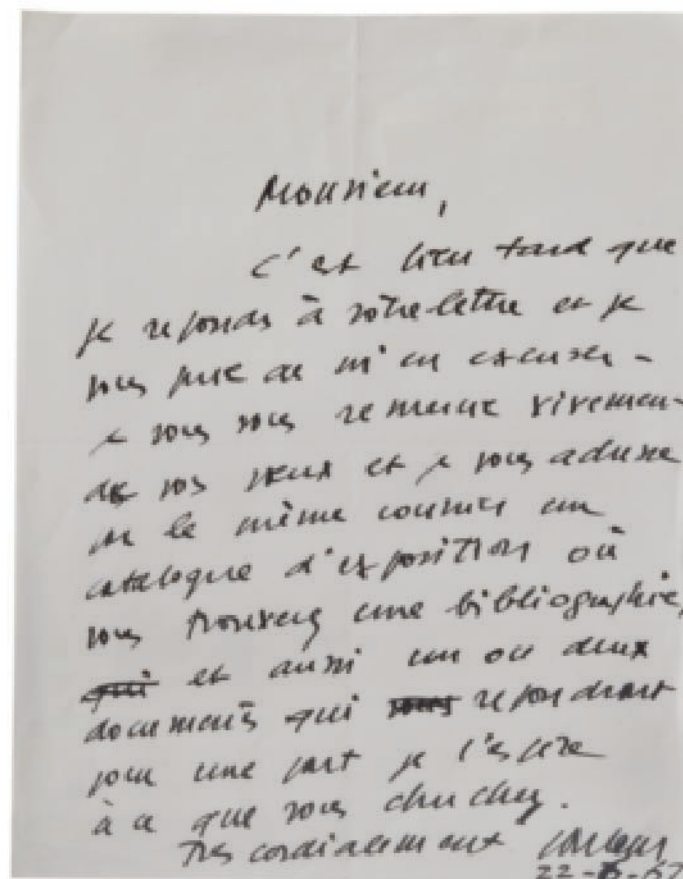 Monsieur,
c'est bien tard que
je reponds à votre lettre et je
vous prie de m'en excuser -
je vous remercie vivement
de vos vœux et je vous adresse
par le même courrier un
catalogue d'exposition où
vous trouverez une bibliographie,
qui et aussi un ou deux
documents qui vous repondront
pour une part je l'espère
à ce que vous cherchez.
Très cordialement
22-5-67